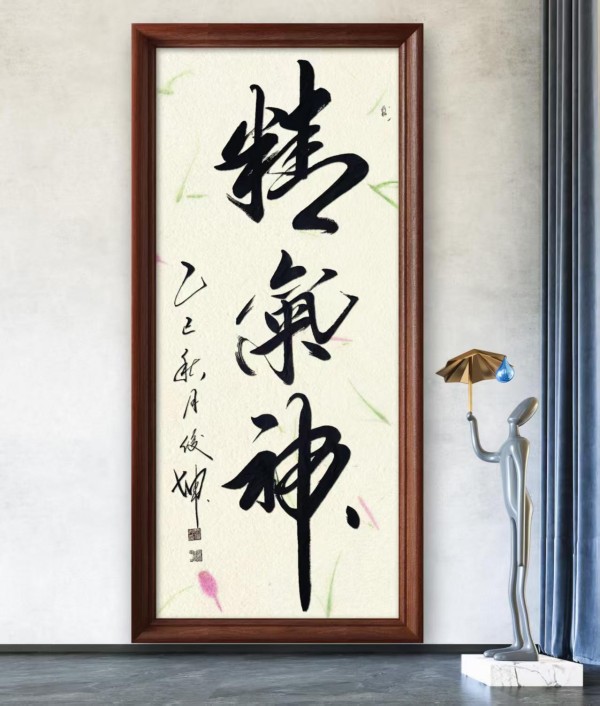 精氣神
乙巳秋月俊坤